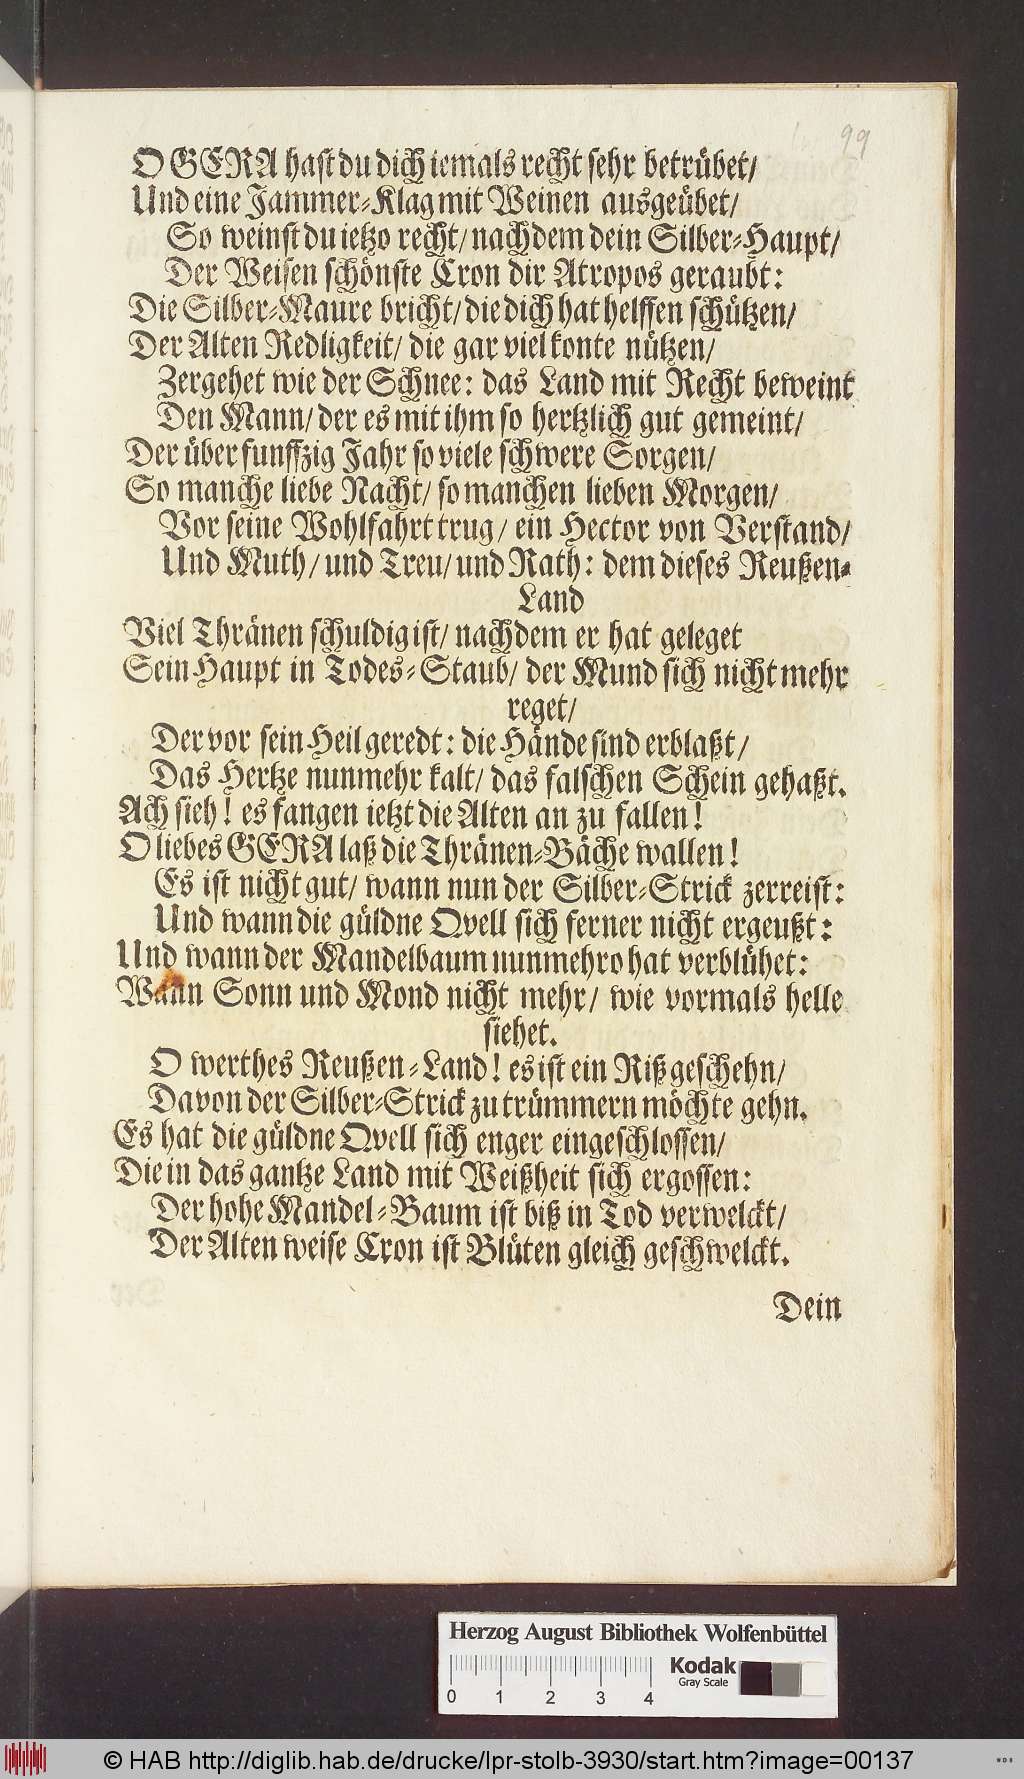 99
O GERA hast du dich iemals recht sehr betrübet/
Und eine Jammer-Klag mit Weinen ausgeübet/
So weinst du ietzo recht/ nachdem dein Silber-Haupt/
Der Weisen schönste Cron dir Atropos geraubt:
Die Silber-Maure bricht/ die dich hat helffen schützen/
Der Alten Redligkeit/ die gar viel konte nützen/
Zergehet wie der Schnee: das Land mit Recht beweint
Den Mann/ der es mit ihm so hertzlich gut gemeint/
Der über funffzig Jahr so viele schwere Sorgen/
So manche liebe Nacht/ so manchen lieben Morgen/
Vor seine Wohlfahrt trug/ ein Hector von Verstand/
Und Muth/ und Treu/ und Rath: dem dieses Reußen-
Land
Viel Thränen schuldig ist/ nachdem er hat geleget
Sein Haupt in Todes-Staub/ der Mund sich nicht mehr
reget/
Der vor sein Heil geredt: die Hände sind erblaßt/
Das Hertze nunmehr kalt/ das falschen Schein gehaßt.
Ach sieh! es fangen ietzt die Alten an zu fallen!
O liebes GERA laß die Thränen-Bäche wallen!
Es ist nicht gut/ wann nun der Silber-Strick zerreist:
Und wann die güldne Qvell sich ferner nicht ergeußt:
Und wann der Mandelbaum nunmehro hat verblühet:
Wann Sonn und Mond nicht mehr/ wie vormals helle
siehet.
O werthes Reußen-Land! es ist ein Riß geschehn/
Davon der Silber-Strick zu trümmern möchte gehn.
Es hat die güldne Qvell sich enger eingeschlossen/
Die in das gantze Land mit Weißheit sich ergossen:
Der hohe Mandel-Baum ist biß in Tod verwelckt/
Der Alten weise Cron ist Blüten gleich geschwelckt.
Dein
Herzog August Bibliothek Wolfenbüttel
Kodak
Gray Scale
0 1 2 3 4
© HAB http://diglib.hab.de/drucke/lpr-stolb-3930/start.htm?image=00137